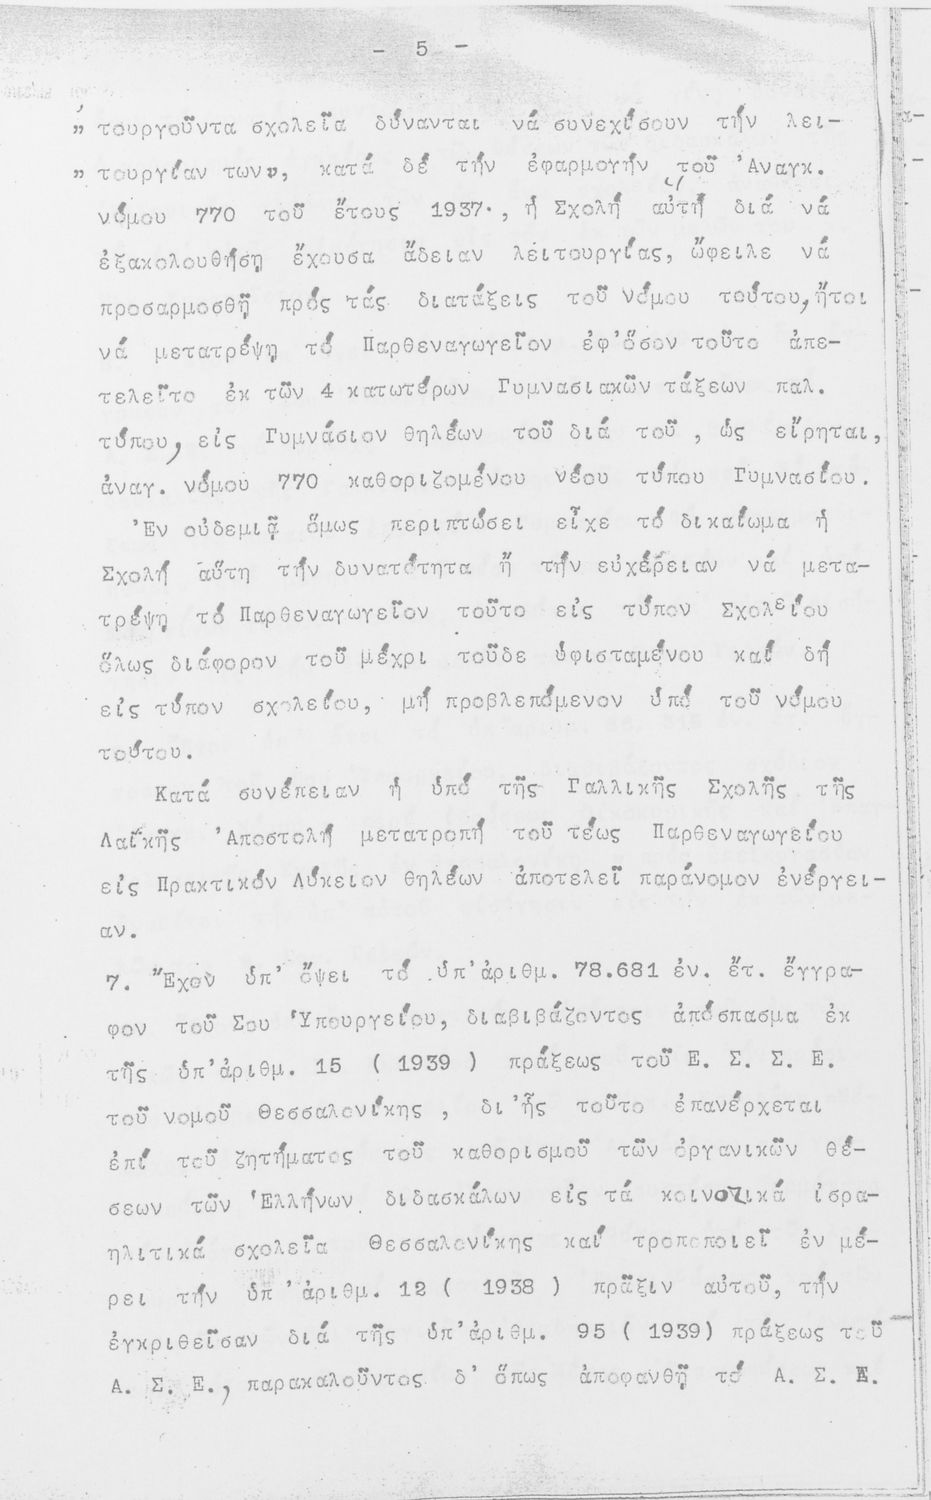 - 5 -
" τουργοῦντα σχολεῖα δύνανται νά συνεχίσουν τήν λει-
" τουργίαν των", κατά δέ τήν ἐφαρμογήν τοῦ Ἀναγκ.
νόμου 770 τοῦ ἔτους 1937., ἡ Σχολή αὐτή διά νά
ἐξακολουθήσῃ ἔχουσα ἄδειαν λειτουργίας, ὤφειλε νά
προσαρμοσθῇ πρός τάς διατάξεις τοῦ νόμου τούτου, ἤτοι
νά μετατρέψῃ τό Παρθεναγωγεῖον ἐφ'ὅσον τοῦτο ἀπε-
τελεῖτο ἐκ τῶν 4 κατωτέρων Γυμνασιακῶν τάξεων παλ.
τύπου, εἰς Γυμνάσιον θηλέων τοῦ διά τοῦ , ὡς εἴρηται,
ἀναγ. νόμου 770 καθοριζομένου νέου τύπου Γυμνασίου.
Ἐν οὐδεμιᾷ ὅμως περιπτώσει εἶχε τό δικαίωμα ἡ
Σχολή αὕτη τήν δυνατότητα ἤ τήν εὐχέρειαν νά μετα-
τρέψῃ τό Παρθεναγωγεῖον τοῦτο εἰς τύπον Σχολείου
ὅλως διάφορον τοῦ μέχρι τοῦδε ὑφισταμένου καί δή
εἰς τύπον σχολείου, μή προβλεπόμενον ὑπό τοῦ νόμου
τούτου.
Κατά συνέπειαν ἡ ὑπό τῆς Γαλλικῆς Σχολῆς τῆς
Λαϊκῆς Ἀποστολή μετατροπή τοῦ τέως Παρθεναγωγείου
εἰς Πρακτικόν Λύκειον θηλέων ἀποτελεῖ παράνομον ἐνέργει-
αν.
7. Ἔχον ὑπ' ὄψει τό ὑπ'ἀριθμ. 78.681 ἐν. ἔτ. ἔγγρα-
φον τοῦ Σου Ὑπουργείου, διαβιβάζοντος ἀπόσπασμα ἐκ
τῆς ὑπ'ἀριθμ. 15 ( 1939 ) πράξεως τοῦ Ε. Σ. Σ. Ε.
τοῦ νομοῦ Θεσσαλονίκης , δι'ἧς τοῦτο ἐπανέρχεται
ἐπί τοῦ ζητήματος τοῦ καθορισμοῦ τῶν ὀργανικῶν θέ-
σεων τῶν Ἑλλήνων διδασκάλων εἰς τά κοινοτικά ἰσρα-
ηλιτικά σχολεῖα Θεσσαλονίκης καί τροποποιεῖ ἐν μέ-
ρει τήν ὑπ 'ἀριθμ. 12 ( 1938 ) πρᾶξιν αὐτοῦ, τήν
ἐγκριθεῖσαν διά τῆς ὑπ'ἀριθμ. 95 ( 1939) πράξεως τοῦ
Α. Σ. Ε., παρακαλοῦντος δ' ὅπως ἀποφανθῇ τό Α. Σ. Ε.